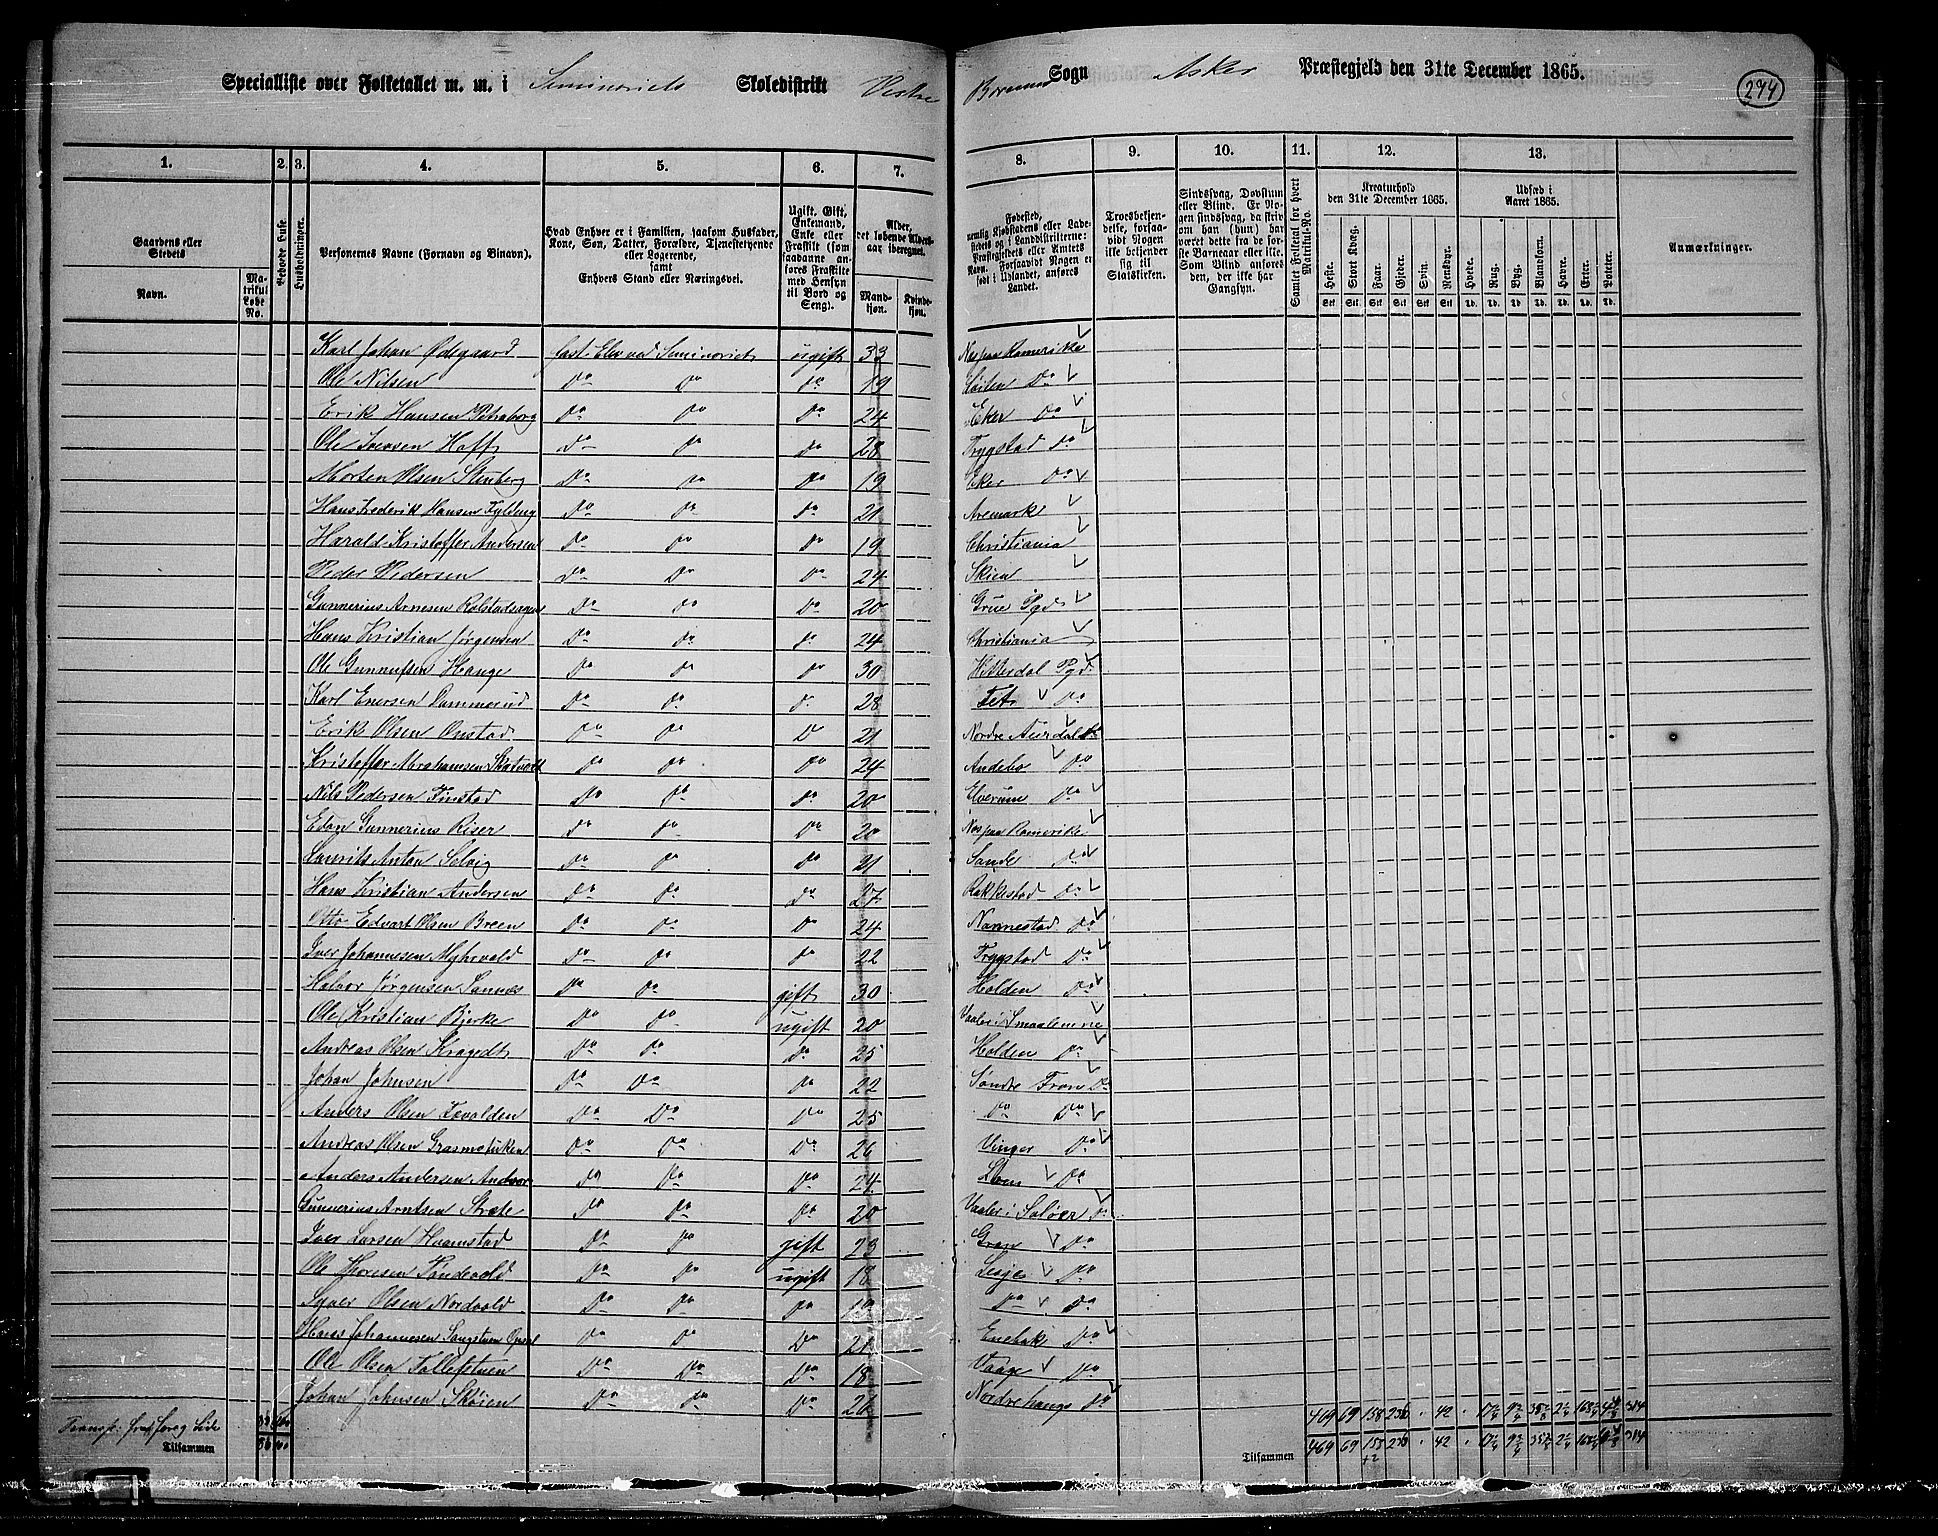 Specialliste over Folketallet m. m. i Seminariets Skoledistrikt Vestre Bærums Sogn Asker Præstegjeld den 31te December 1865.
294
1. 2. 3. 4. 5. 6. 7. 8. 9. 10. 11. 12. 13.
Gaardens eller Stedets
Navn.
Matrikul Løbe No.
Beboede Huse.
Husholdninger.
Personernes Navne (Fornavn og Binavn).
Hvad Enhver er i Familien, saasom Husfader, Kone, Søn, Datter, Forældre, Tjenestetyende eller Logerende, samt Enhvers Stand eller Næringsvei.
Ugift, Gift, Enkemand, Enke eller Fraskilt (som saadanne anføres Fraskilte med Hensyn til Bord og Seng).
Alder, det løbende Aldersaar iberegnet.
Mandkjøn.
Kvindekjøn.
Fødested, nemlig Kjøbstadens eller Ladestedets og i Landdistrikterne: Præstegjeldets eller Amtets Navn. Forsaavidt Nogen er født i Udlandet, anføres Landet.
Troesbekjendelse, forsaavidt Nogen ikke bekjender sig til Statskirken.
Sindssvag, Døvstum eller Blind. Er Nogen sindssvag, da skriv om han (hun) har været dette fra de første Barneaar eller ikke. Som Blind anføres den, der ikke har Gangsyn.
Samlet Folketal for hvert Matrikul-No.
Kreaturhold den 31te December 1865.
Heste. Stort Kvæg. Faar. Gjeder. Svin. Rensdyr.
Udsæd i Aaret 1865.
Hvede. Rug. Byg. Blandkorn. Havre. Erter. Poteter.
Anmærkninger.
Karl Johan Ødegaard fast Elev ved Seminariet ugift 33 Næs paa Romerike
Ole Nilsen Do Do Do 19 Do
Erik Hansen Do Do Do 24 Eker Do
Ole Iversen Hoff Do Do Do 28 Trygstad Do
Morten Olsen Stenberg Do Do Do 19 Eker Do
Hans Frederik Hansen Do Do Do 21 Aremark
Harald Kristoffer Andersen Do Do Do 19 Christiania
Peder Pedersen Do Do Do 24 Skien
Gunnerius Arnesen Do Do Do 20 Grue Pgd
Hans Kristian Jørgensen Do Do Do 24 Christiania
Ole Gunnufsen Hauge Do Do Do 30 Hitterdal Pgd
Karl Enersen Dammerud Do Do Do 28 Fet Do
Erik Olsen Onstad Do Do Do 21 Nordre Aurdal Do
Kristoffer Abrahamsen Do Do Do 24 Andebo Do
Nils Pedersen Finstad Do Do Do 20 Elverum Do
Edan Gunnerius Riser Do Do Do 20 Næs paa Romerike
Laurits Anton Selvig Do Do Do 21 Sande Do
Hans Kristian Andersen Do Do Do 27 Rakkestad Do
Otto Edvart Olsen Breen Do Do Do 24 Nannestad Do
Iver Johannesen Myhrvold Do Do Do 22 Trygstad Do
Halvor Jørgensen Sannes Do Do gift 30 Holden Do
Ole Kristian Bjerke Do Do ugift 20 Vaaler i Smaalenene
Andreas Olsen Do Do Do 25 Holden Do
Johan Johnsen Do Do Do 22 Søndre Fron Do
Anders Olsen Do Do Do 25 Do Do
Andreas Olsen Do Do Do 26 Vinger Do
Anders Andersen Do Do Do 24 Do
Gunnerius Arntsen Stræte Do Do Do 20 Vaaler i Soløer Do
Iver Larsen Haamstad Do Do gift 23 Gran Do
Ole Thoresen Sandevold Do Do ugift 18 Lesje Do
Syver Olsen Nordvold Do Do Do 19 Do Do
Hans Johannesen Do Do Do 21 Enebak Do
Ole Olsen Tollefstuen Do Do Do 18 Vaage Do
Johan Johnsen Skøien Do Do Do 20 Nordrehaug Do
Transp. fra foreg Side
469 69 158 42 314
Tilsammen
Tilsammen 469 69 42 314
+2